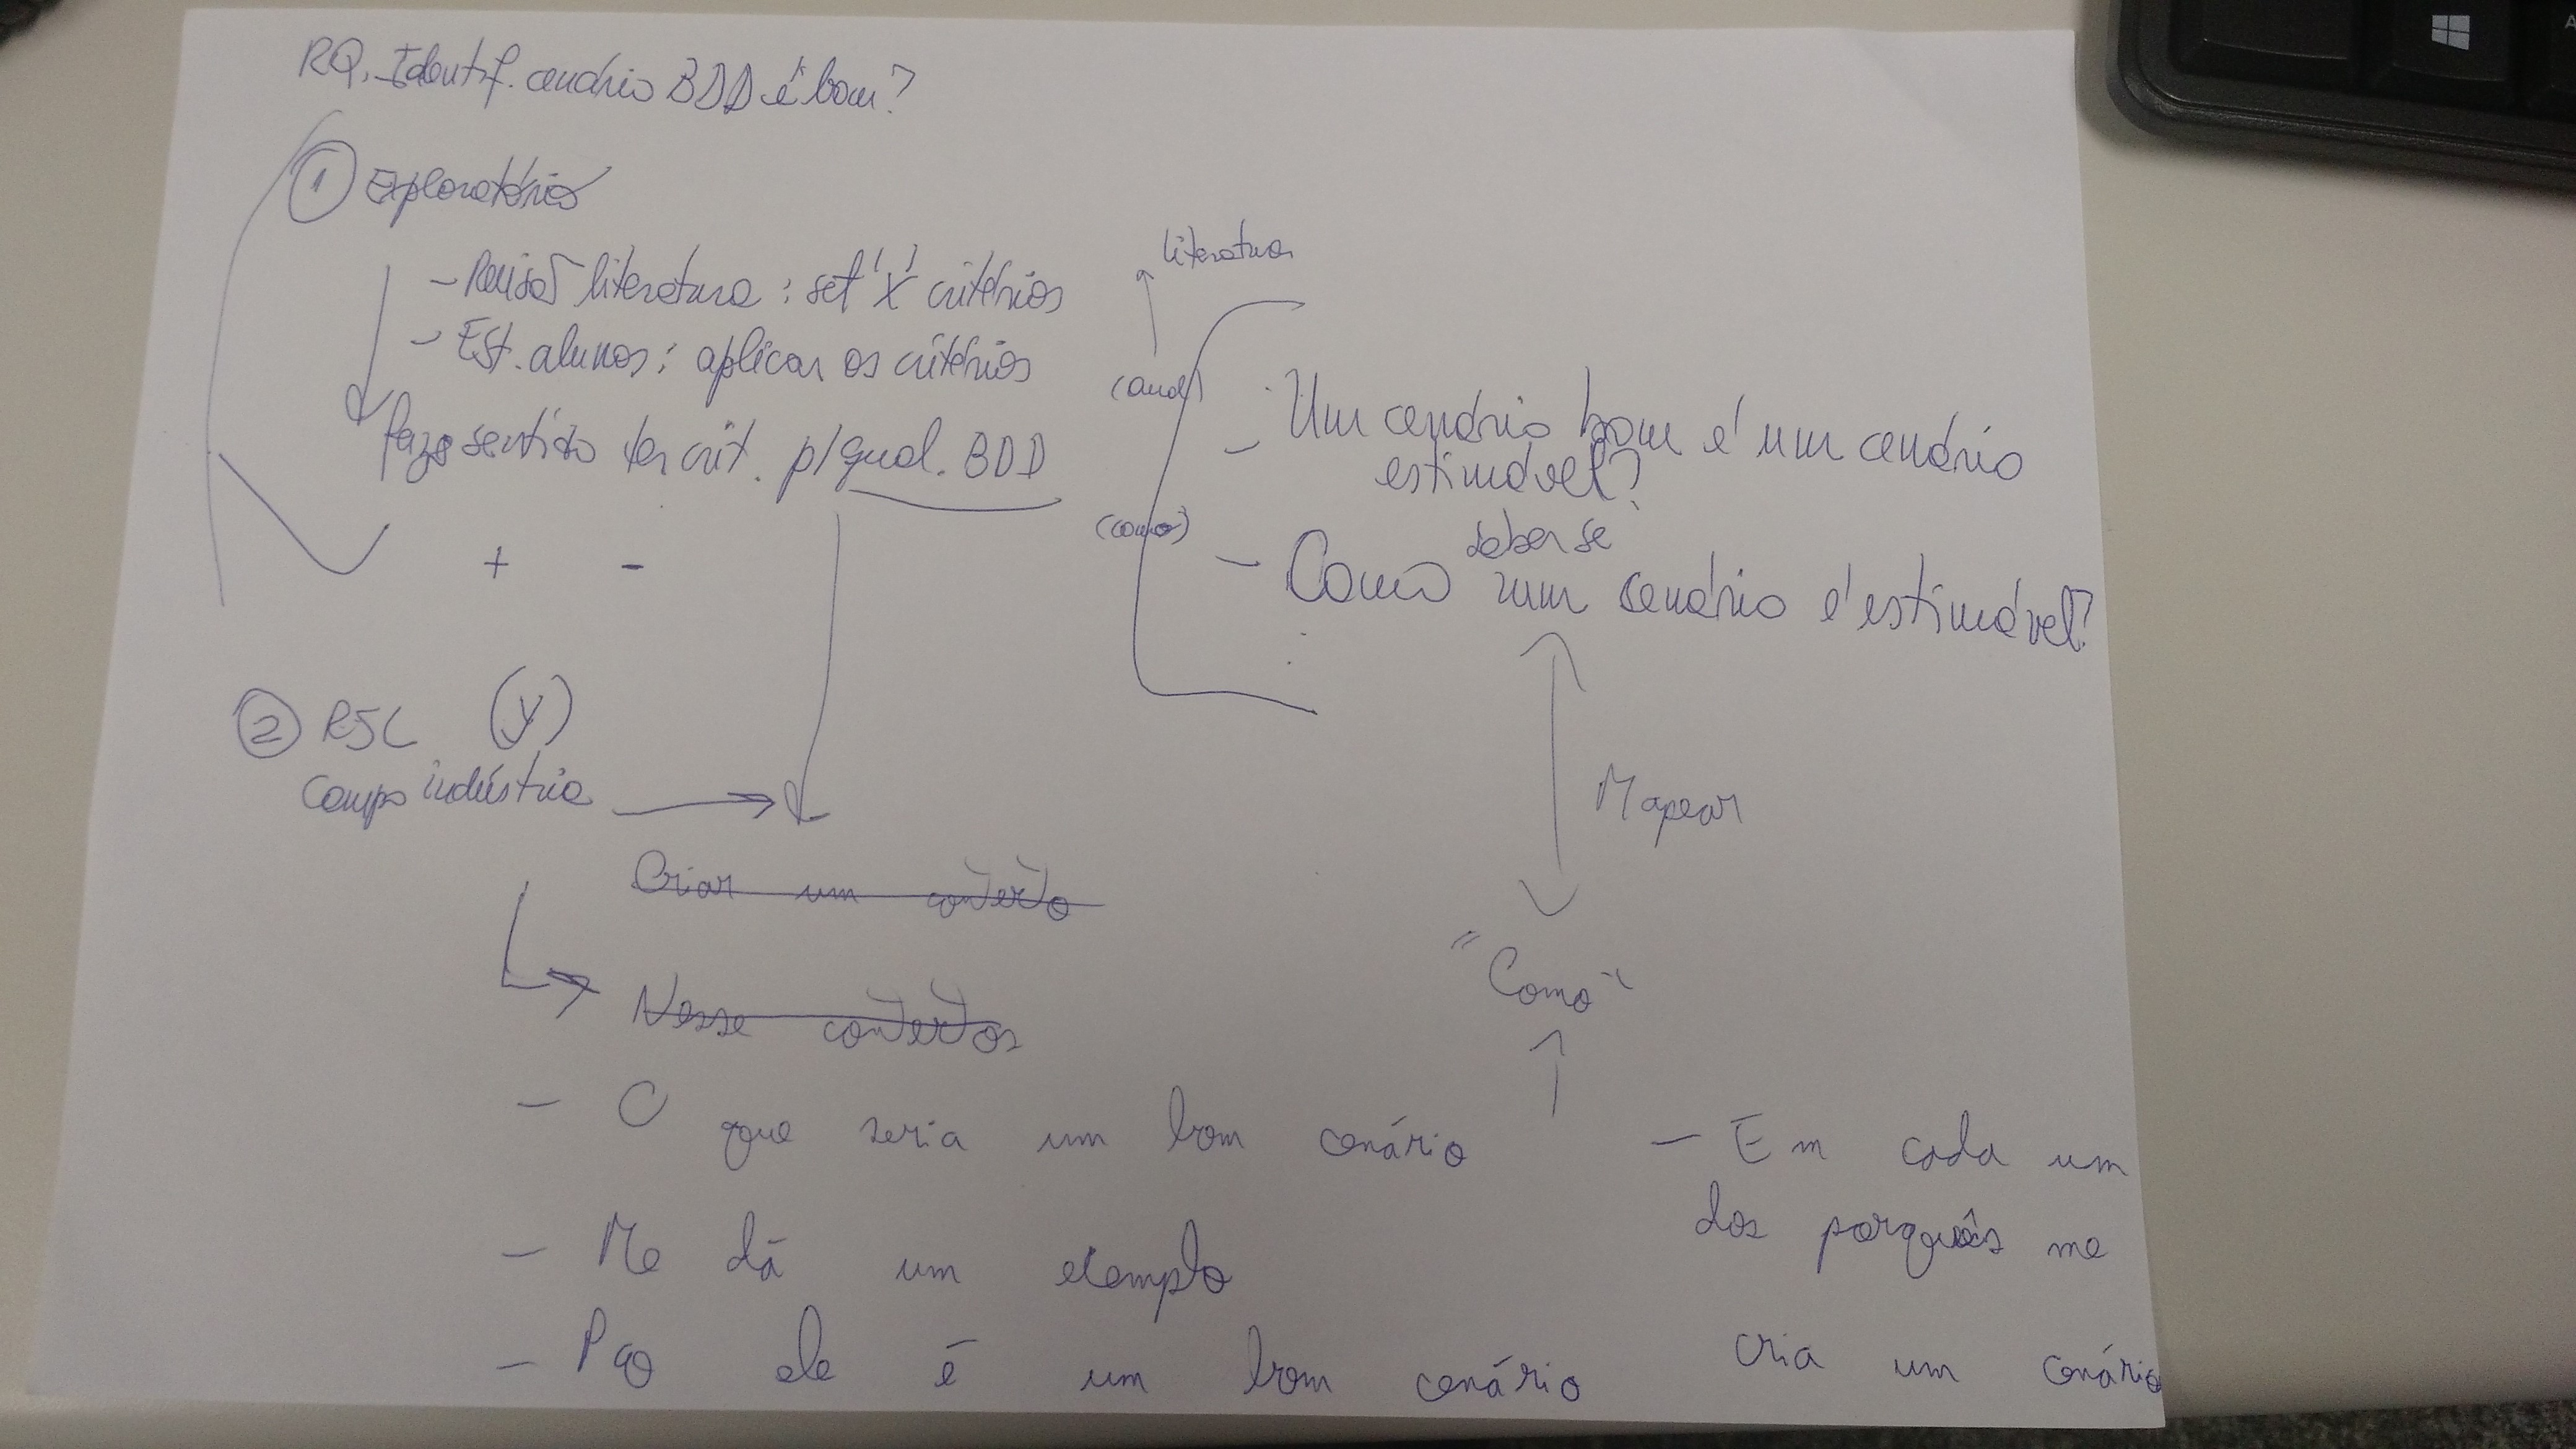 RQ. Identif. cenário BDD é bom?
1 Exploratório
- Revisão literatura: set 'X' critérios
- Est. alunos: aplicar os critérios
faz sentido ter crit. p/ qual. BDD
+ -
2 RSL (y)
Campo indústria
Criar um contexto
Nesse contextos
- O que seria um bom cenário
- Me dá um exemplo
- Pqo ele é um bom cenário
literatura
- Um cenário bom é um cenário
estimável?
(como)
saber se
- Como um cenário é estimável?
Mapear
"Como"
- Em cada um
dos porquês me
cria um cenário